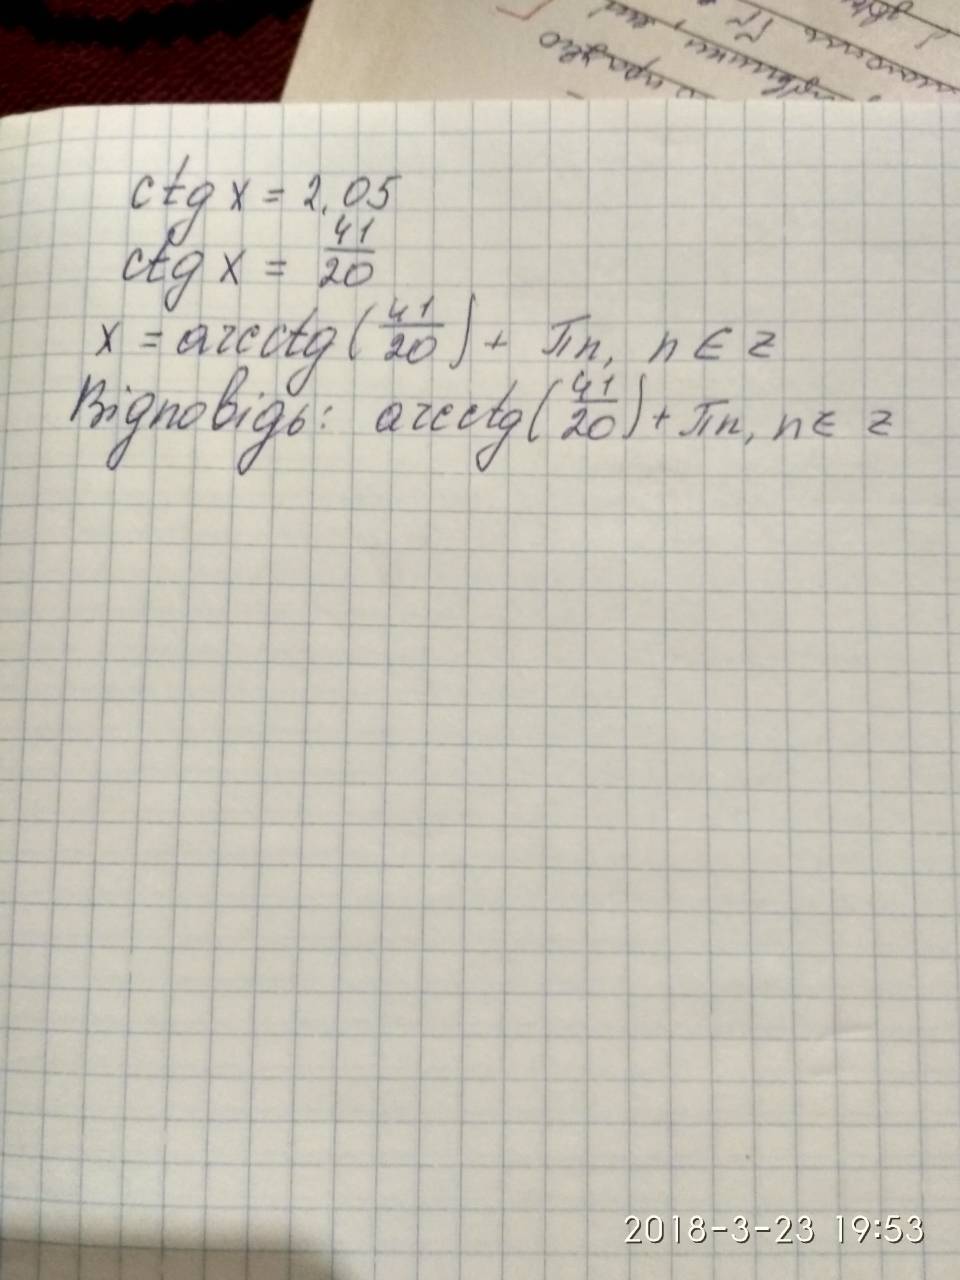 ctg x = 2,05
ctg x = 41/20
x = arcctg(41/20) + πn, n ∈ z
Відповідь: arcctg(41/20) + πn, n ∈ z
2018-3-23 19:53